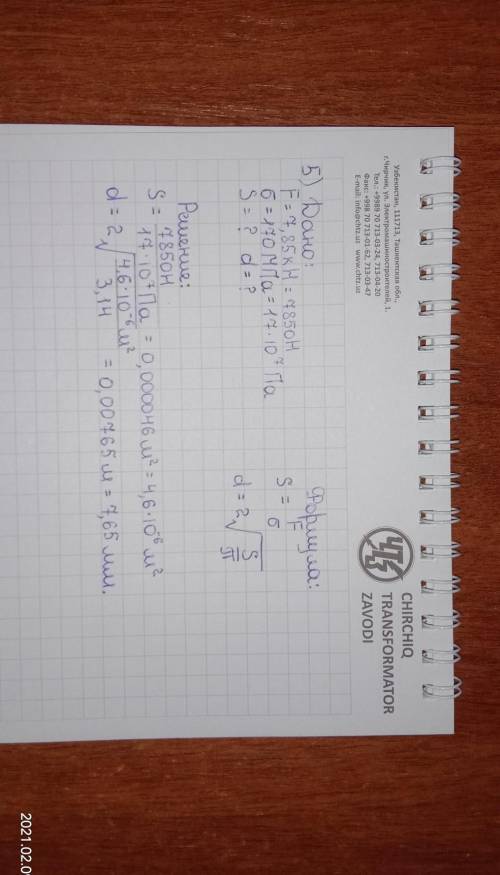 Узбекистан, 111713, Ташкентская обл.,
г.Чирчик, ул. Электромашиностроителей, 1.
Тел.: +9989 70 713-03-24, 713-04-20
Факс: +998 70 713-01-62, 713-03-47
E-mail: info@chtz.uz www.chtz.uz
CHIRCHIQ
TRANSFORMATOR
ZAVODI
5) Дано: Формула:
F = 7,85 кН = 7850Н S = F/σ
б = 170 МПа = 17·10⁷ Па
S = ? d = ? d = 2√S/π
Решение:
S = 7850Н / 17·10⁷ Па = 0,000046 м² = 4,6·10⁻⁶ м²
d = 2√4,6·10⁻⁶ м² / 3,14 = 0,00765 м = 7,65 мм.